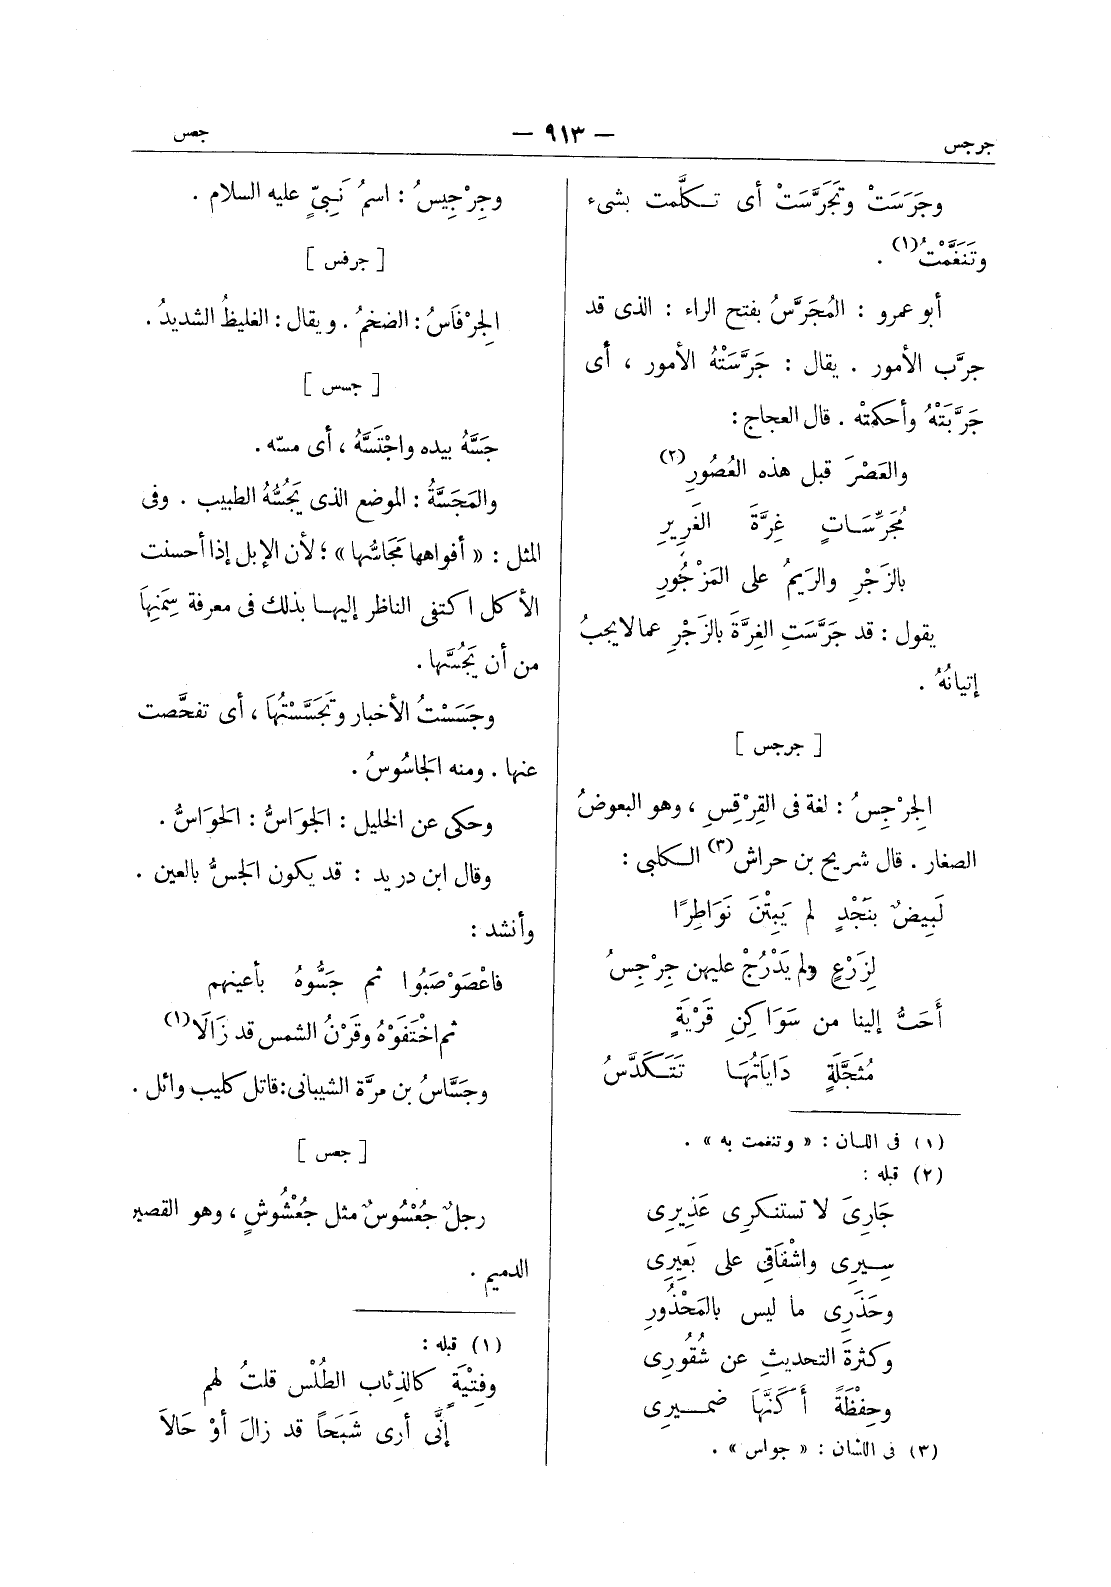 جرجس
— ٩١٣ —
جعس
وجَرَسَتْ وتَجَرَّسَتْ أى تـكلَّمت بشىء
وتَنَغَّمْتُ(١) .
أبو عمرو : المُجَرَّسُ بفتح الراء : الذى قد
جرَّب الأمور . يقال : جَرَّسَتْهُ الأمور ، أى
جَرَّبَتْهُ وأحكمتْه . قال العجاج :
والعَصْرَ قبل هذه العُصُورِ(٢)
مُجَرِّسَـاتٍ غِرَّةَ الغَرِيرِ
بالزَجْرِ والرَيمُ على المَزْجُورِ
يقول : قد جَرَّسَتِ الغِرَّةَ بالزَجْرِ عما لا يجبُ
إتيانُهُ .
[ جرجس ]
الجِرْجِسُ : لغة فى القِرْقِسِ ، وهو البعوضُ
الصغار . قال شريح بن حراش(٣) الـكلبى :
لَبِيضٌ بنَجْدٍ لم يَبِتْنَ نَوَاطِرًا
لِزَرْعٍ ولم يَدْرُجْ عليهن جِرْجِسُ
أَحَبُّ إلينا من سَوَاكِنِ قَرْيَةٍ
مُثَجَّلَةٍ دَايَاتُهَا تَتَـكَدَّسُ
(١) فى اللسان : « وتنغمت به » .
(٢) قبله :
جَارِىَ لا تستنكرى عَذِيرِى
سِـيرِى وإشْفَاقِى على بَعِيرِى
وحَذَرِى ما ليس بالمَحْذُورِ
وكثرةَ التحديثِ عن شُقُورِى
وحِفْظَةً أَكَنَّهَا ضمـيرِى
(٣) فى اللسان : « جواس » .
وجِرْجِيسُ : اسمُ نَبِىٍّ عليه السلام .
[ جرفس ]
الجِرْفَاسُ : الضخمُ . ويقال : الغليظُ الشديدُ .
[ جسس ]
جَسَّهُ بيده واجْتَسَّهُ ، أى مسّه .
والمَجَسَّةُ : الموضع الذى يَجُسُّهُ الطبيب . وفى
المثل : « أفواهها مَجَاسُّها » ؛ لأن الإبل إذا أحسنت
الأكل اكتفى الناظر إليهـا بذلك فى معرفة سِمَنِهَا
من أن يَجُسَّها .
وجَسَسْتُ الأخبار وتَجَسَّسْتُهَا ، أى تفحَّصت
عنها . ومنه الجاسُوسُ .
وحكى عن الخليل : الجَوَاسُّ : الحَوَاسُّ .
وقال ابن دريد : قد يكون الجَسُّ بالعين .
وأنشد :
فاعْصَوْصَبُوا ثم جَسُّوهُ بأعينهم
ثم اخْتَفَوْهُ وقَرْنُ الشمس قد زَالَا(١)
وجَسَّاسُ بن مرَّة الشيبانى : قاتل كليب وائل .
[ جعس ]
رجلٌ جُعْسُوسٌ مثل جُعْشُوشٍ ، وهو القصير
الدميم .
(١) قبله :
وفِتْيَةٍ كالذئاب الطُلْسِ قلتُ لهم
إنِّى أرى شَبَحاً قد زالَ أوْ حَالَا